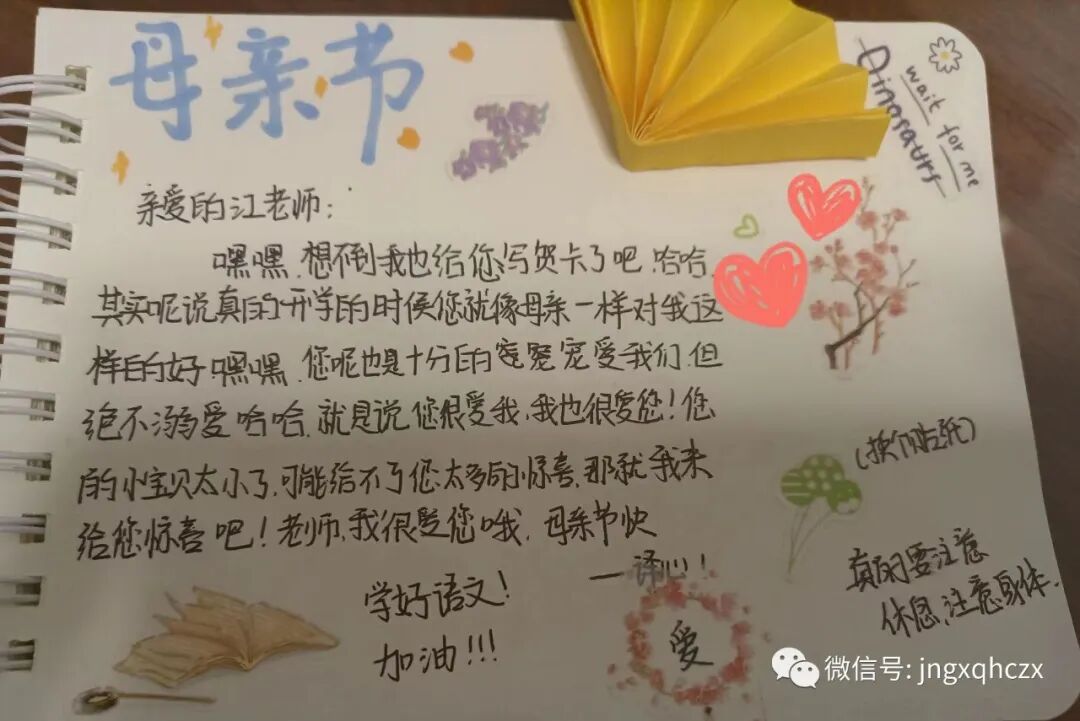 母亲节
Dinosaurs
wait for me
亲爱的江老师:
嘿嘿,想不到我也给你写贺卡了吧,哈哈,
其实呢说真的开学的时候您就像母亲一样对我这
样的好,嘿嘿,您呢也是十分的宠爱我们,但
绝不溺爱哈哈,就是说,您很爱我,我也很爱您!您
的小宝贝太小了,可能给不了您太多的惊喜,那就我来
给您惊喜吧!老师,我很爱您哦,母亲节快
一译心!
(换个贴纸)
真的要注意
休息,注意身体.
学好语文!
加油!!!
爱
微信号: jngxqhczx